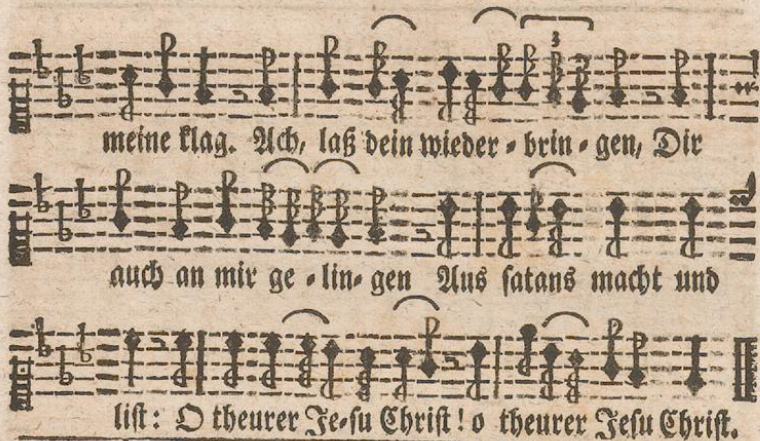 meine klag. Ach, laß dein wieder - brin - gen, Dir
auch an mir ge - lin - gen Aus satans macht und
list: O theurer Je-su Christ! o theurer Jesu Christ.